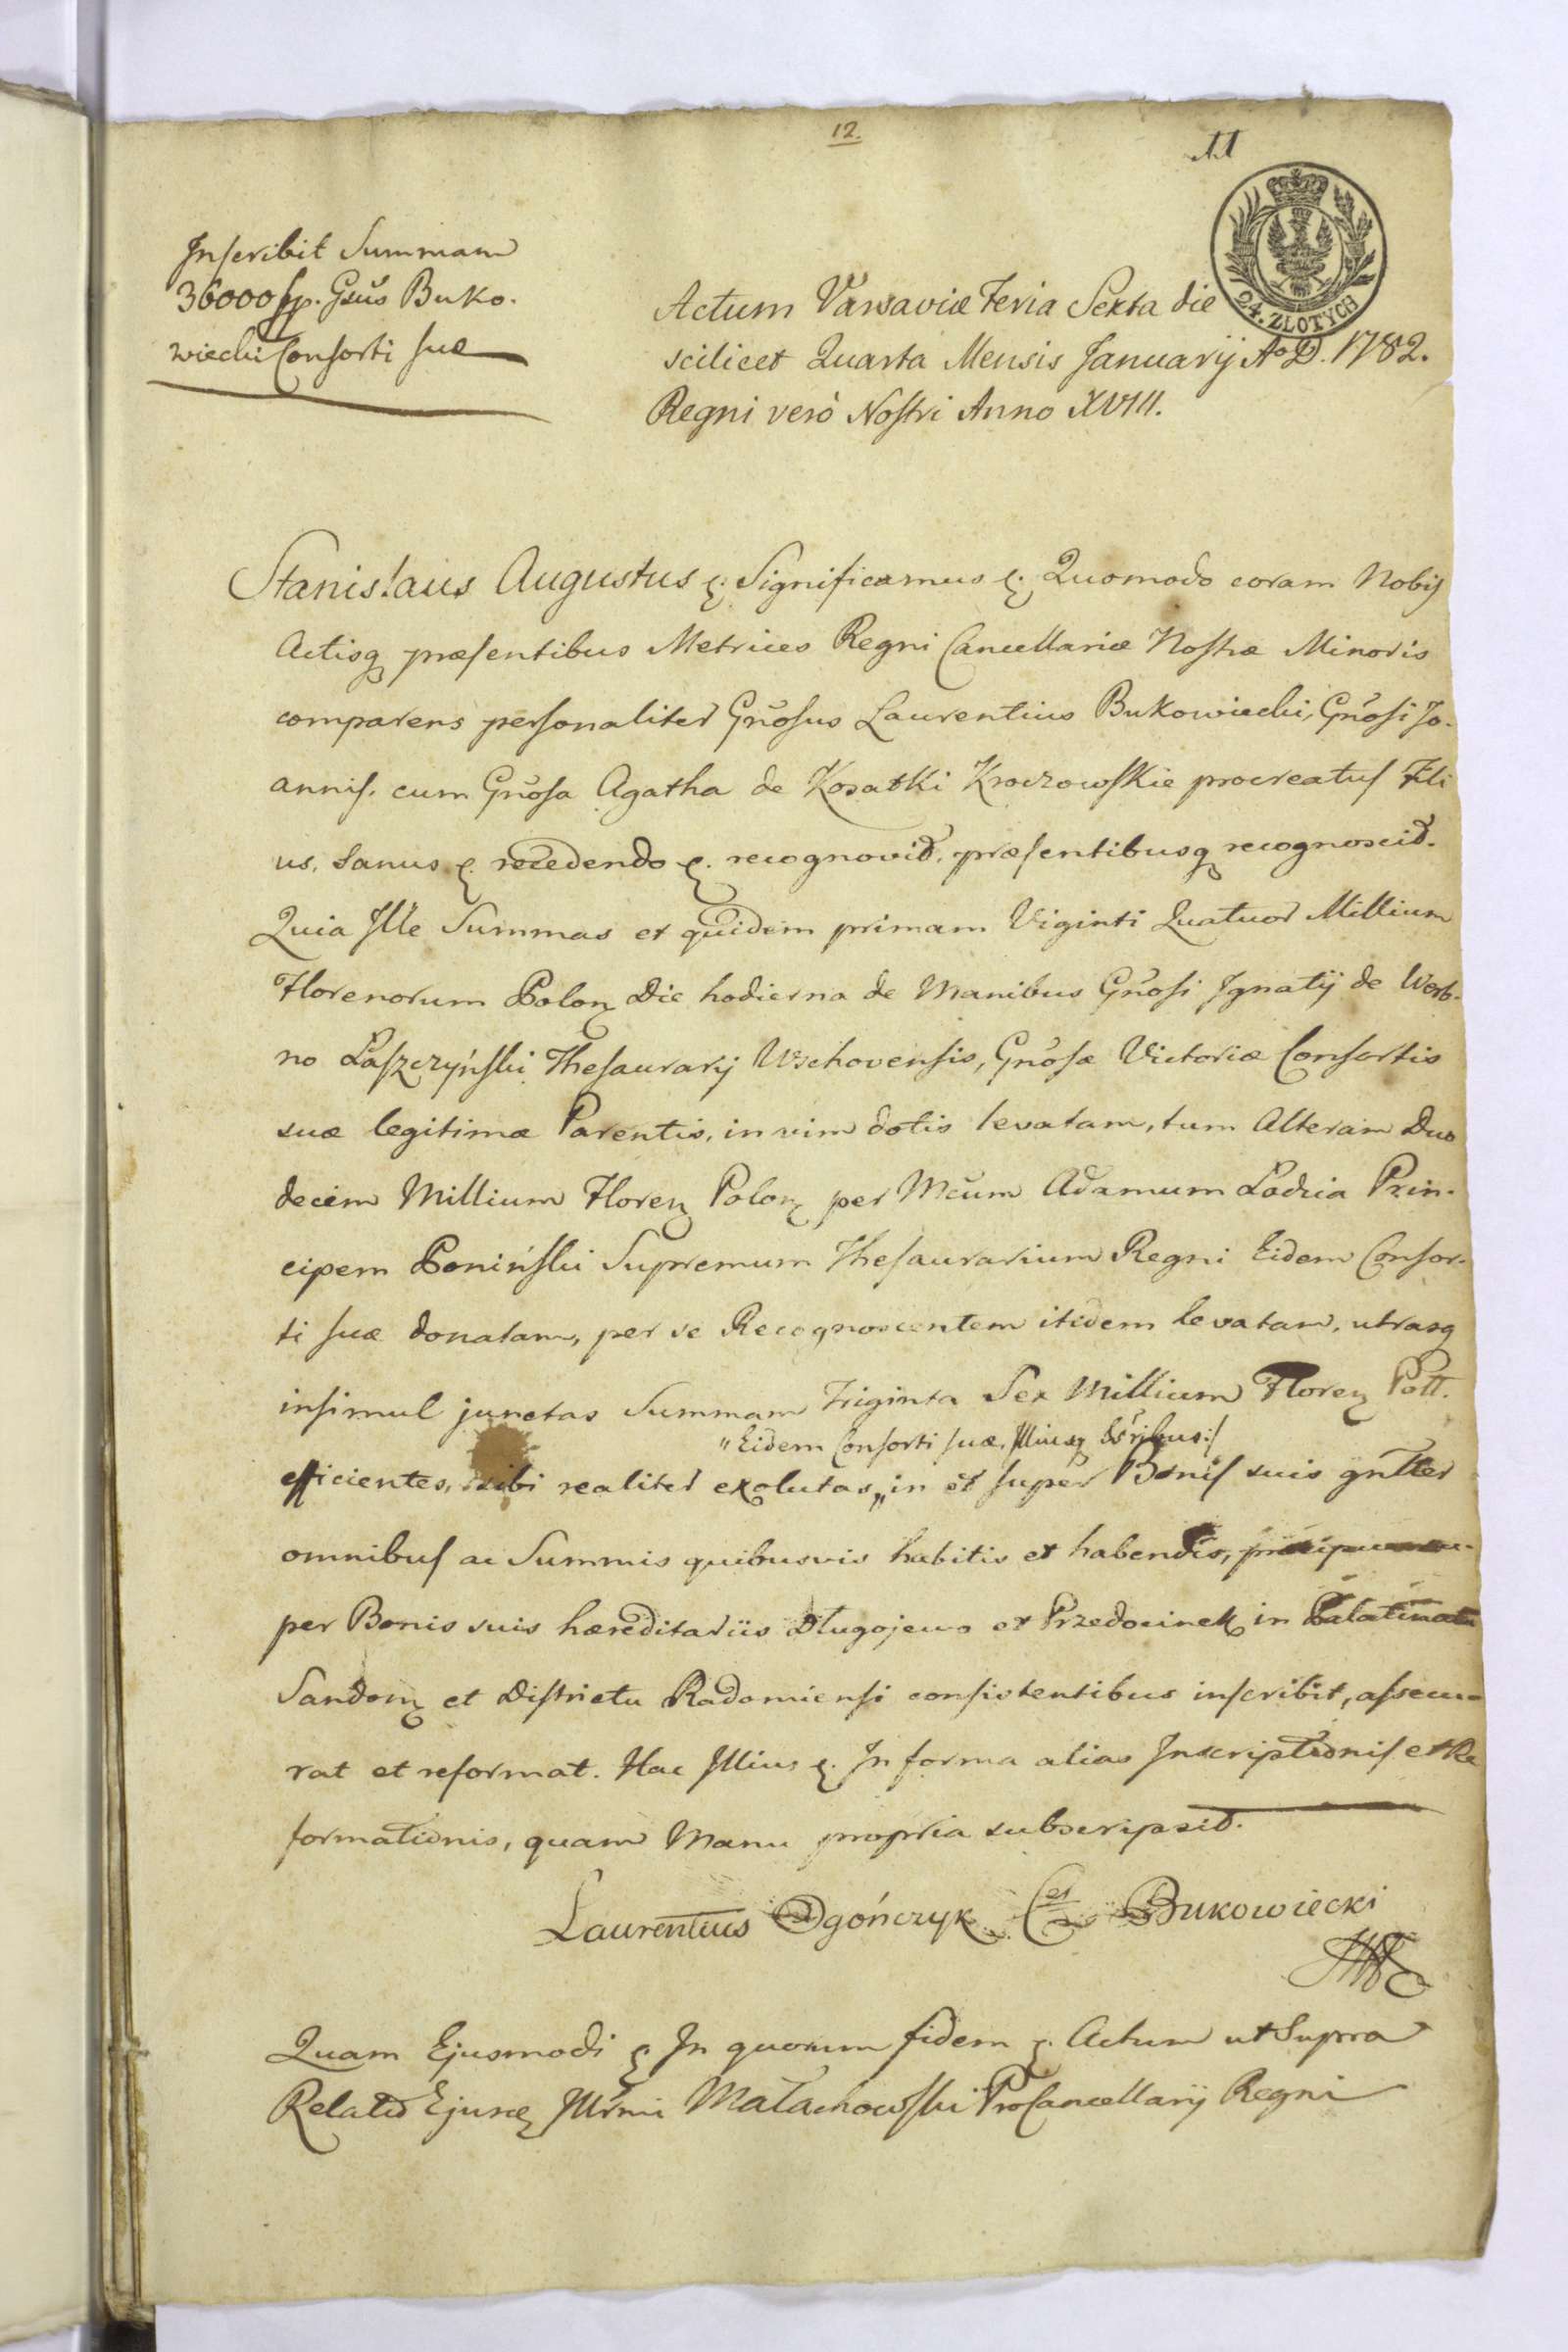 12.
11
24. ZŁOTYCH
Inscribit Summam
36000 fp. Gsūs Buko-
wiecki Consorti suæ
Actum Varsaviæ Feria Sexta die
scilicet Quarta Mensis Januarij Aº D. 1782.
Regni verò Nostri Anno XVIII.
Stanislaus Augustus &. Significamus &. Quomodo coram Nobis
Actisq præsentibus Metrices Regni Cancellariæ Nostræ Minoris
comparens personaliter Gñosus Laurentius Bukowiecki, Gñosi Jo-
annis, cum Gñosa Agatha de Kosatki Kroczowskie procreatus Fili
us, sanus &. recedendo &. recognovit, præsentibusq recognoscit.
Quia Ille Summas et quidem primam Viginti Quatuor Millium
Florenorum Polon Die hodierna de Manibus Gñosi Ignatij de Werb-
no Łaszczyński Thesaurarij Wschovensis, Gñosæ Victoriæ Consortis
suæ legitimæ Parentis, in vim dotis levatam, tum Alteram Duo
decim Millium Floren Polon per Mcum Adamum Lodzia Prin-
cipem Poniński Supremum Thesaurarium Regni Eidem Consor-
ti suæ donatam, per se Recognoscentem itidem levatam, utrasq
insimul junctas Summam Triginta Sex Millium Floren Poll.
"Eidem Consorti suæ, Illiusq :/
efficientes, sibi realiter exolutas,, in et super Bonis suis gnller
omnibus ac Summis quibusvis habitis et habendis, præcipue su-
per Bonis suis hæreditariis Długojewo et Przedocinek in Palatinatu
Sandom et Districtu Radomiensi consistentibus inscribit, assecu-
rat et reformat. Hac Illius &. In forma alias Inscriptionis et Re
formationis, quam Manu propria subscripsit.
Laurentius Ogończyk Bukowiecki
Quam Ejusmodi &. In quorum fidem &. Actum ut Supra
Relatio Ejusd Illrmi Małachowski ProCancellarij Regni